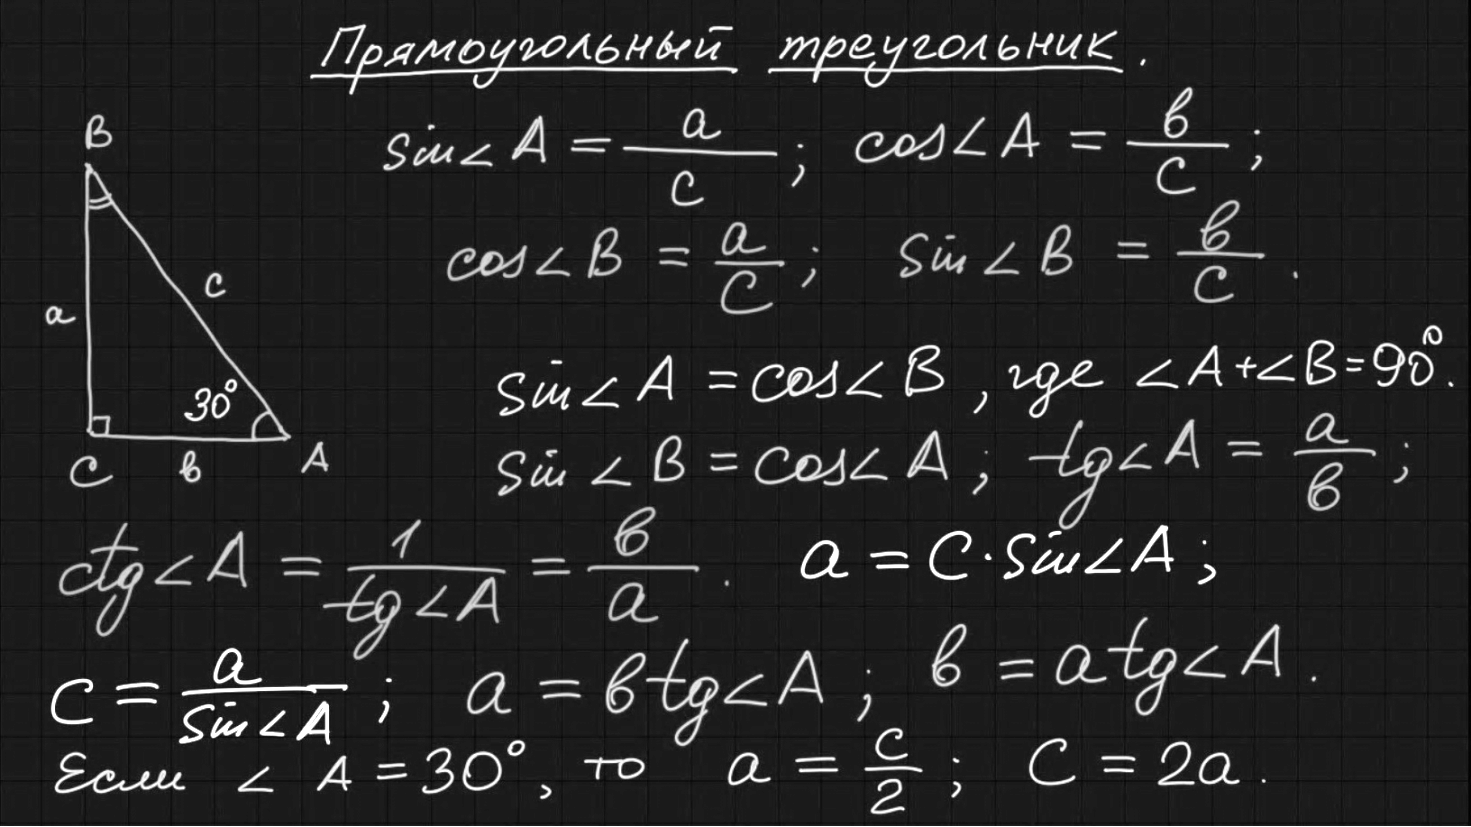 Прямоугольный треугольник.
sin∠A = a/c ; cos∠A = в/c ;
B
cos∠B = a/c ; sin∠B = в/c .
c
a
sin∠A = cos∠B , где ∠A+∠B=90°.
30°
sin∠B = cos∠A ; tg∠A = a/в ;
C в A
ctg∠A = 1/tg∠A = в/a . a = c·sin∠A ;
c = a/sin∠A ; a = в tg∠A ; в = a tg∠A .
Если ∠A = 30°, то a = c/2 ; c = 2a .